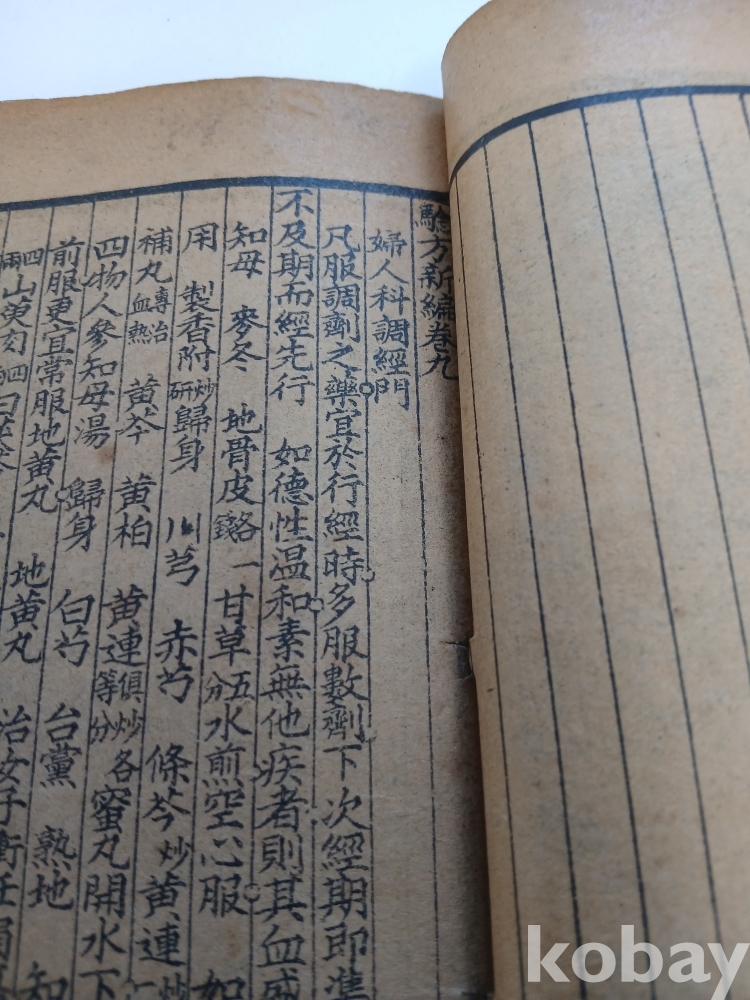 驗方新編卷九
婦人科調經門
凡服調劑之藥宜於行經時多服數劑下次經期即準
不及期而經先行 如德性温和素無他疾者則其血盛
知母 麥冬 地骨皮各錢一甘草五分水煎空心服 如
用 製香附炒研歸身 川芎 赤芍 條芩炒黄連炒
補丸專治血熱 黄芩 黄柏 黄連俱炒各等分蜜丸開水下
四物人參知母湯 歸身 白芍 台黨 熟地 知
前服更宜常服地黄丸 地黄丸 治女子衝任損
四兩山萸肉四
kobay